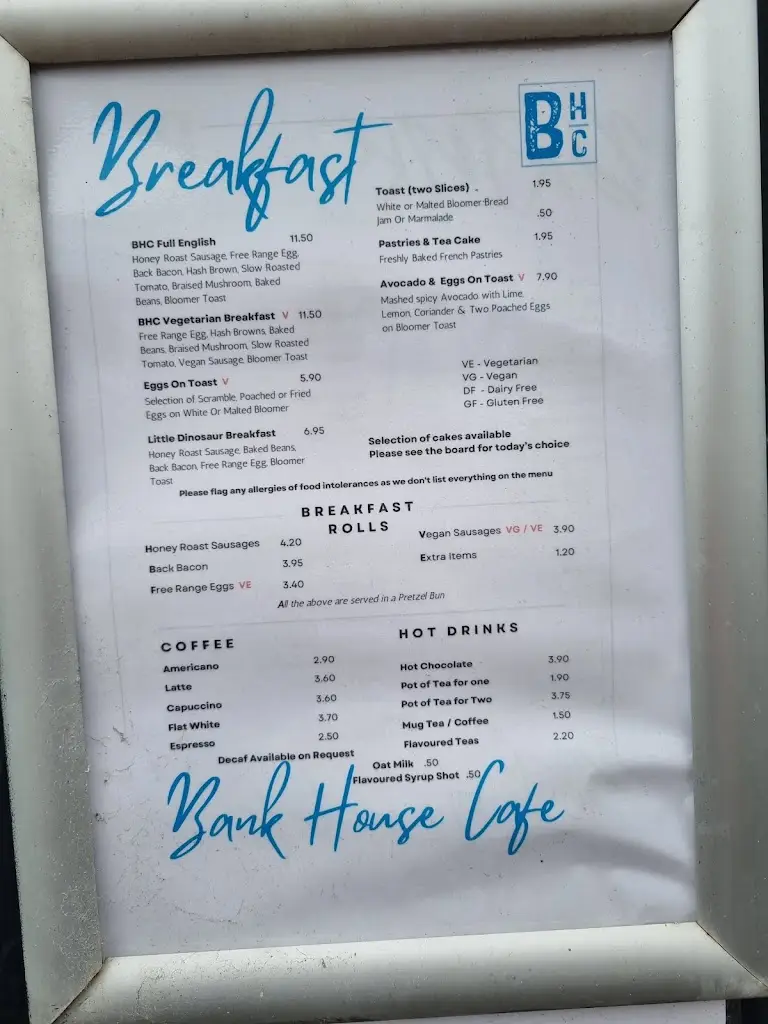 Breakfast
B H C
BHC Full English 11.50
Honey Roast Sausage, Free Range Egg,
Back Bacon, Hash Brown, Slow Roasted
Tomato, Braised Mushroom, Baked
Beans, Bloomer Toast
BHC Vegetarian Breakfast V 11.50
Free Range Egg, Hash Browns, Baked
Beans, Braised Mushroom, Slow Roasted
Tomato, Vegan Sausage, Bloomer Toast
Eggs On Toast V 5.90
Selection of Scramble, Poached or Fried
Eggs on White Or Malted Bloomer
Little Dinosaur Breakfast 6.95
Honey Roast Sausage, Baked Beans,
Back Bacon, Free Range Egg, Bloomer
Toast
Toast (two Slices) . 1.95
White or Malted Bloomer Bread
Jam Or Marmalade .50
Pastries & Tea Cake 1.95
Freshly Baked French Pastries
Avocado & Eggs On Toast V 7.90
Mashed spicy Avocado with Lime,
Lemon, Coriander & Two Poached Eggs
on Bloomer Toast
VE - Vegetarian
VG - Vegan
DF - Dairy Free
GF - Gluten Free
Selection of cakes available
Please see the board for today's choice
Please flag any allergies of food intolerances as we don't list everything on the menu
BREAKFAST
ROLLS
Honey Roast Sausages 4.20
Back Bacon 3.95
Free Range Eggs VE 3.40
Vegan Sausages VG / VE 3.90
Extra Items 1.20
All the above are served in a Pretzel Bun
COFFEE
Americano 2.90
Latte 3.60
Capuccino 3.60
Flat White 3.70
Espresso 2.50
Decaf Available on Request
HOT DRINKS
Hot Chocolate 3.90
Pot of Tea for one 1.90
Pot of Tea for Two 3.75
Mug Tea / Coffee 1.50
Flavoured Teas 2.20
Oat Milk .50
Flavoured Syrup Shot .50
Bank House Cafe